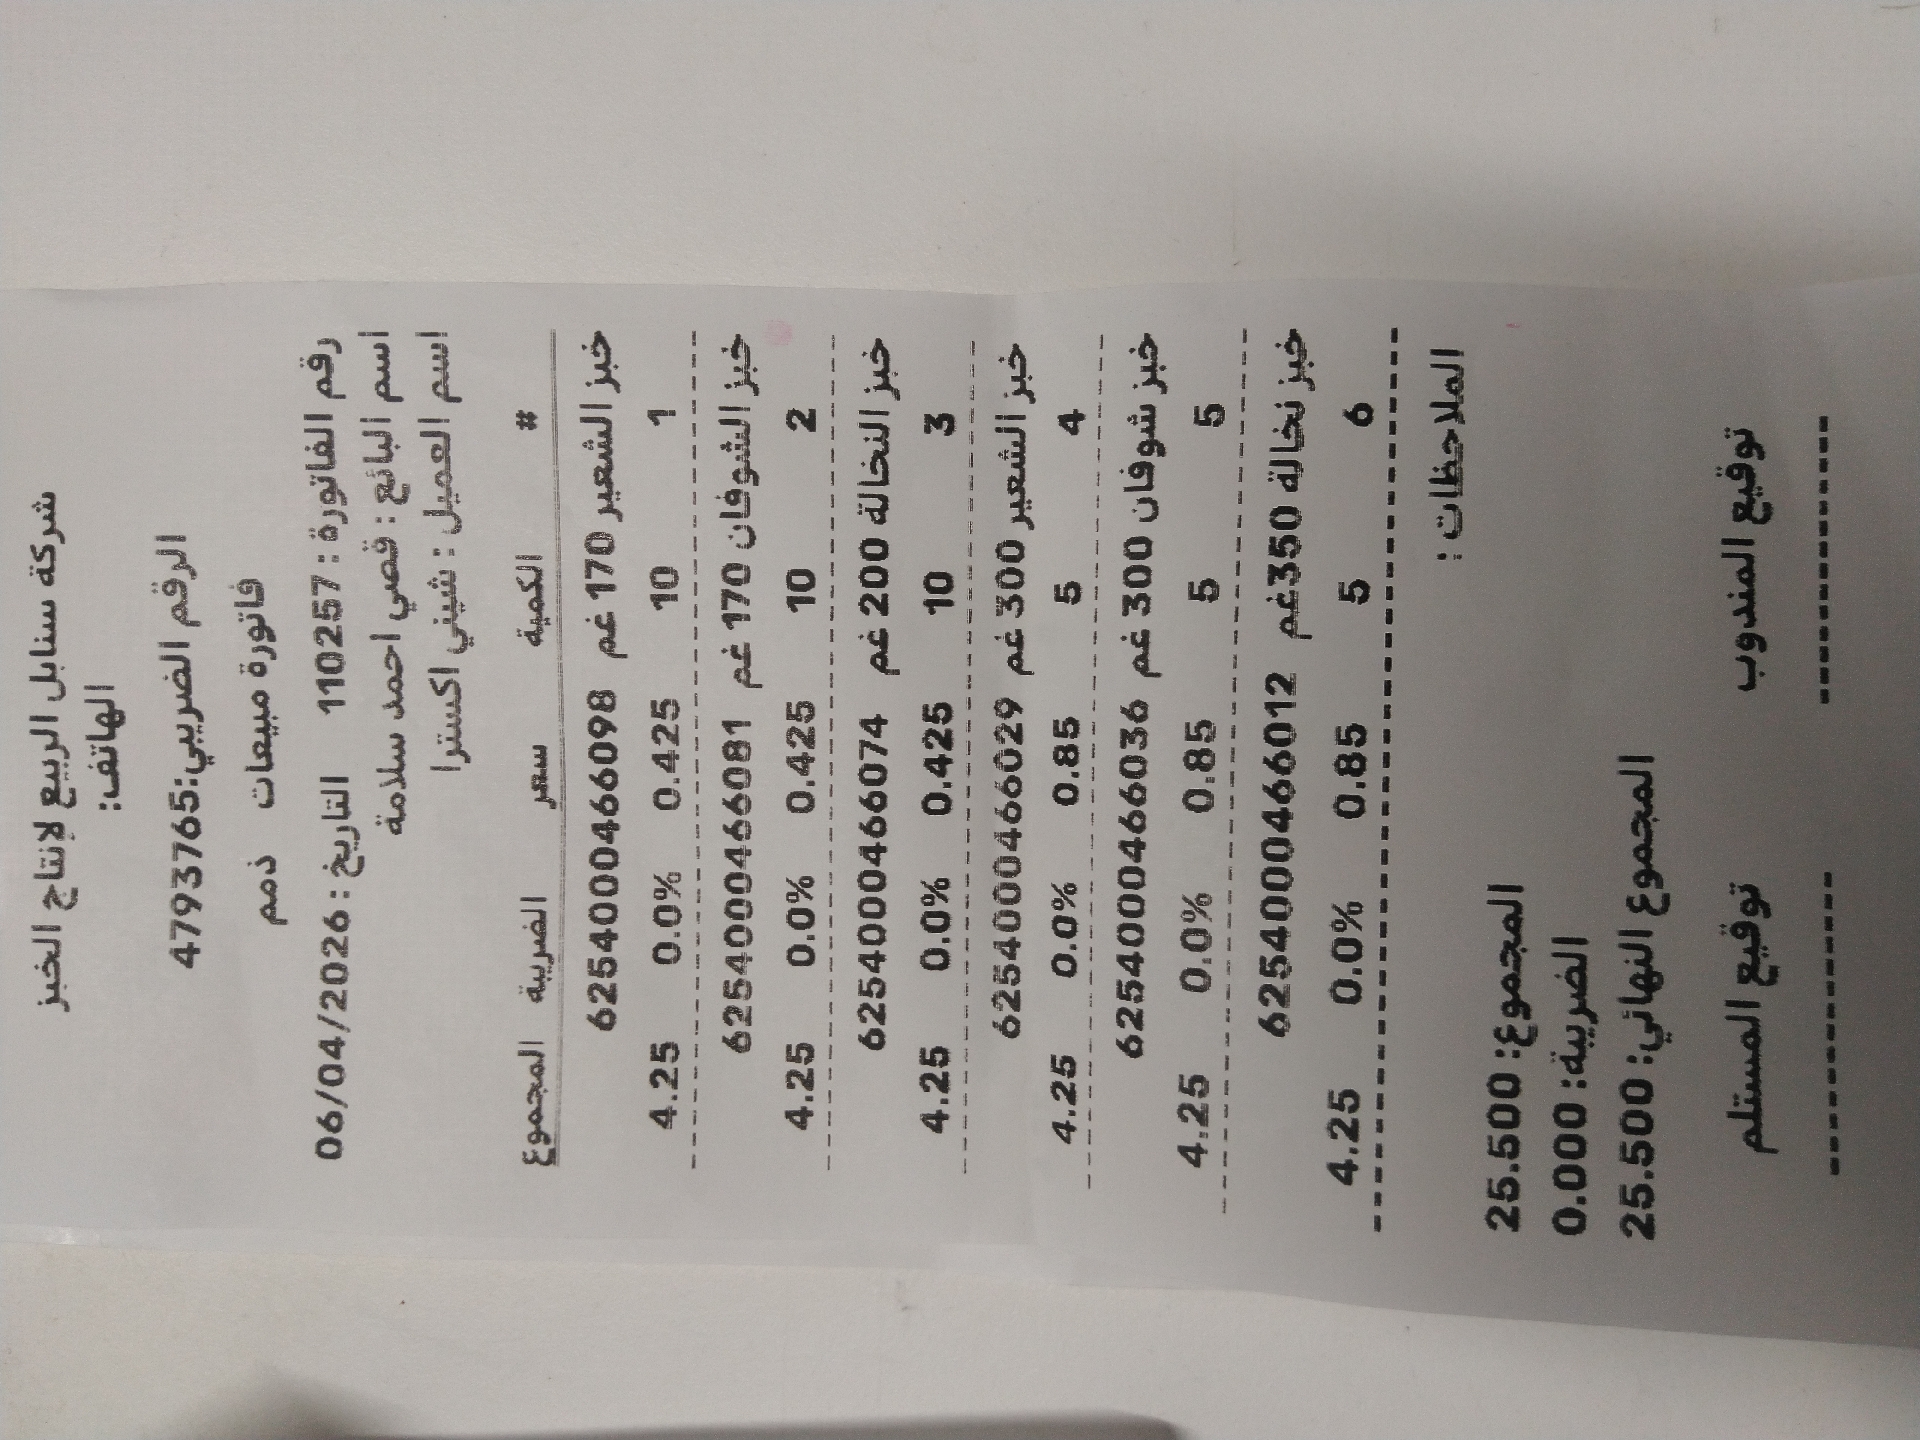 شركة سنابل الربيع لإنتاج الخبز
الهاتف:
الرقم الضريبي:4793765
فاتورة مبيعات ذمم
رقم الفاتورة : 110257 التاريخ : 06/04/2026
اسم البائع : قصي احمد سلامة
اسم العميل : شيني اكسترا
# الكمية سعر الضريبة المجموع
خبز الشعير 170 غم 6254000466098
1 10 0.425 0.0% 4.25
خبز الشوفان 170 غم 6254000466081
2 10 0.425 0.0% 4.25
خبز النخالة 200 غم 6254000466074
3 10 0.425 0.0% 4.25
خبز الشعير 300 غم 6254000466029
4 5 0.85 0.0% 4.25
خبز شوفان 300 غم 6254000466036
5 5 0.85 0.0% 4.25
خبز نخالة 350غم 6254000466012
6 5 0.85 0.0% 4.25
الملاحظات :
المجموع: 25.500
الضريبة: 0.000
المجموع النهائي: 25.500
توقيع المندوب توقيع المستلم